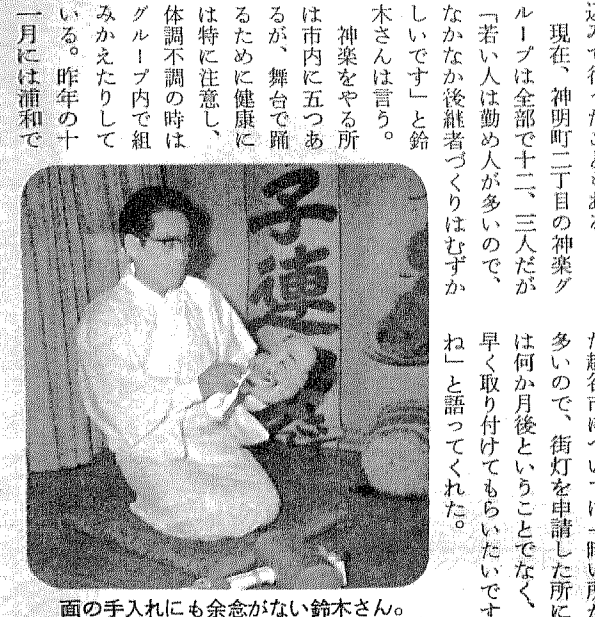 で行ったこともある
現在、神明町二丁目の神楽グ
ループは全部で十二、三人だが
「若い人は勤め人が多いので、
なかなか後継者づくりはむずか
しいです」と鈴
木さんは言う。
神楽をやる所
は市内に五つあ
るが、舞台で踊
るために健康に
は特に注意し、
体調不調の時は
グループ内で組
みかえたりして
いる。昨年の十
一月には浦和で
越谷市
暗い所が
多いので、街灯を申請した所に
は何か月後ということでなく、
早く取り付けてもらいたいです
ね」と語ってくれた。
子連
面の手入れにも余念がない鈴木さん。